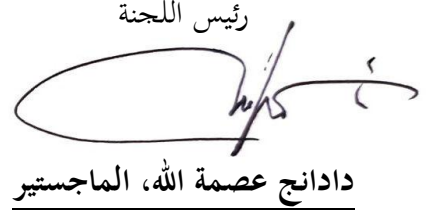 رئيس اللجنة
دادانج عصمة الله، الماجستير